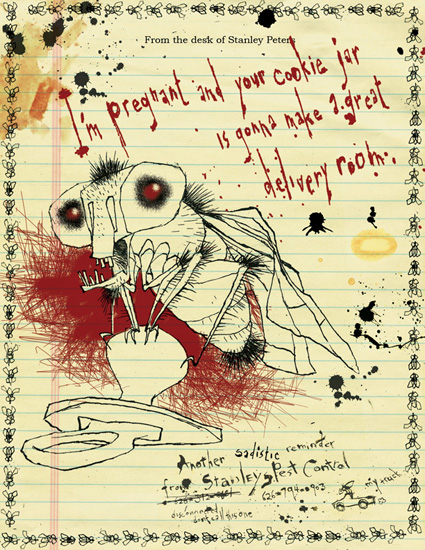 From the desk of Stanley Peters
I'm pregnant and your cookie jar
is gonna make a great
delivery room.
Another sadistic reminder
from Stanley Pest Control
626-794-0903
disconnected
don't call this one
my truck